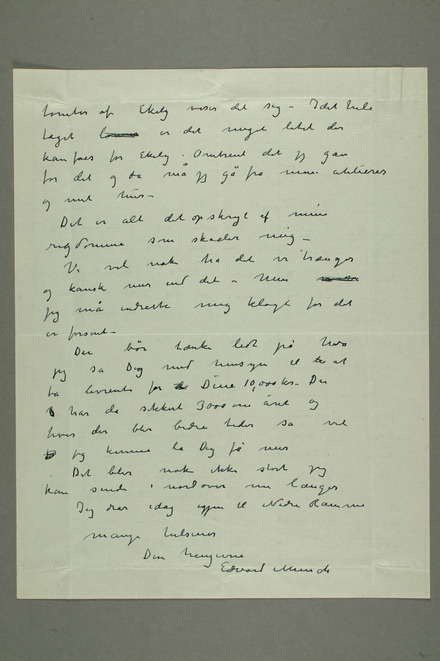 tomter af Ekely viser det sig – I det hele
taget er det meget lidet der
kan faes for Ekely. Omtrent det jeg gav
for det og da må jeg gå fra mine atelierer
og mit hus –
Det er alt det opskryt af mine
rigdomme som skader mig –
Vi vil nok ha det vi trænger
og kanske mer end det – Men
jeg må indrette mig klogt for det
er forsent –
Du bør tænke lidt på hva
jeg sa Dig med hensyn til at
ta livrente for Dine 10,000 kr. Du
har da sikkert 3000 om året og
hvis der blir bedre tider så vil
jeg kunne la Dig få mer
Det blir nok ikke stort jeg
kan sende nordover nu længer
Jeg drar idag igjen til Nedre Ramme
mange hilsener
Din hengivne
Edvard Munch